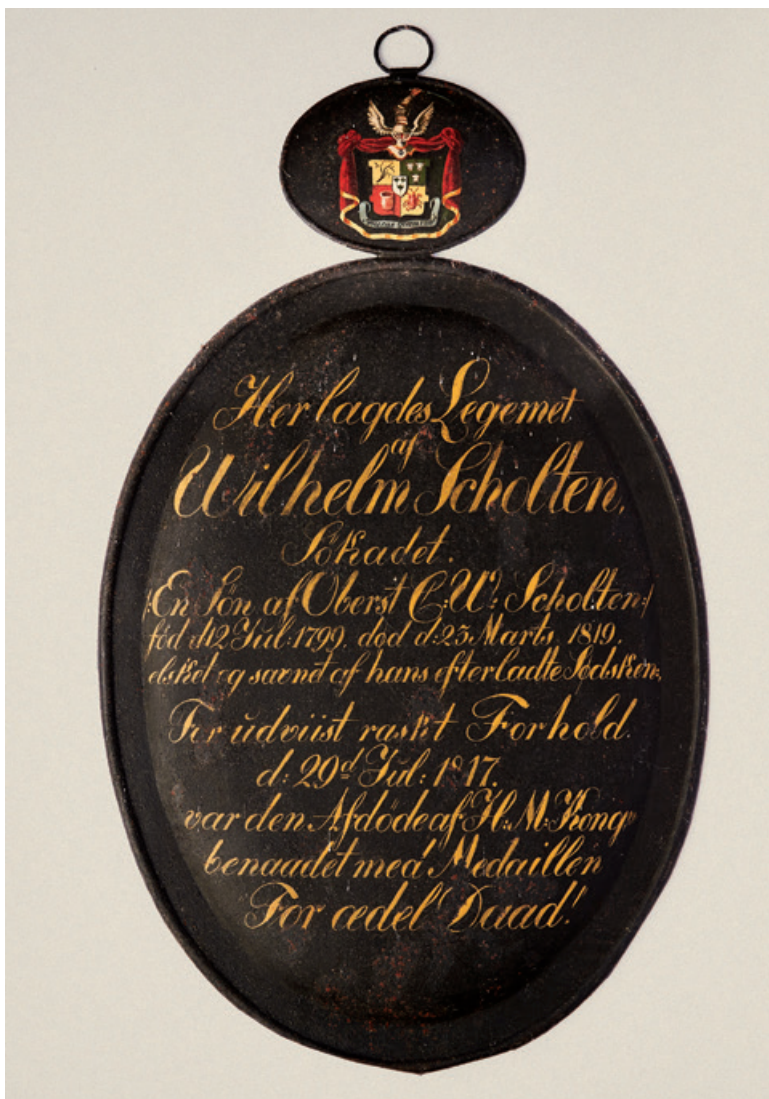 Her lagdes Legemet
af
Wilhelm Scholten,
Sökadet.
/:En Sön af Oberst C: W: Scholten:/
föd d: 12 Jul: 1799, död d: 25 Marts, 1819.
elsket og savnet af hans efterladte Södsken;
For udviist raskt Forhold
d: 29d Jul: 1817.
var den Afdöde af H: M: Kong
benaadet med Medaillen
"For ædel Daad!